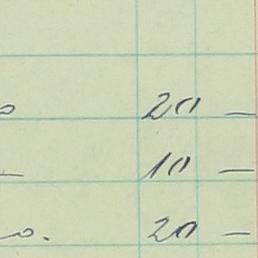 20 —
10 —
20 —